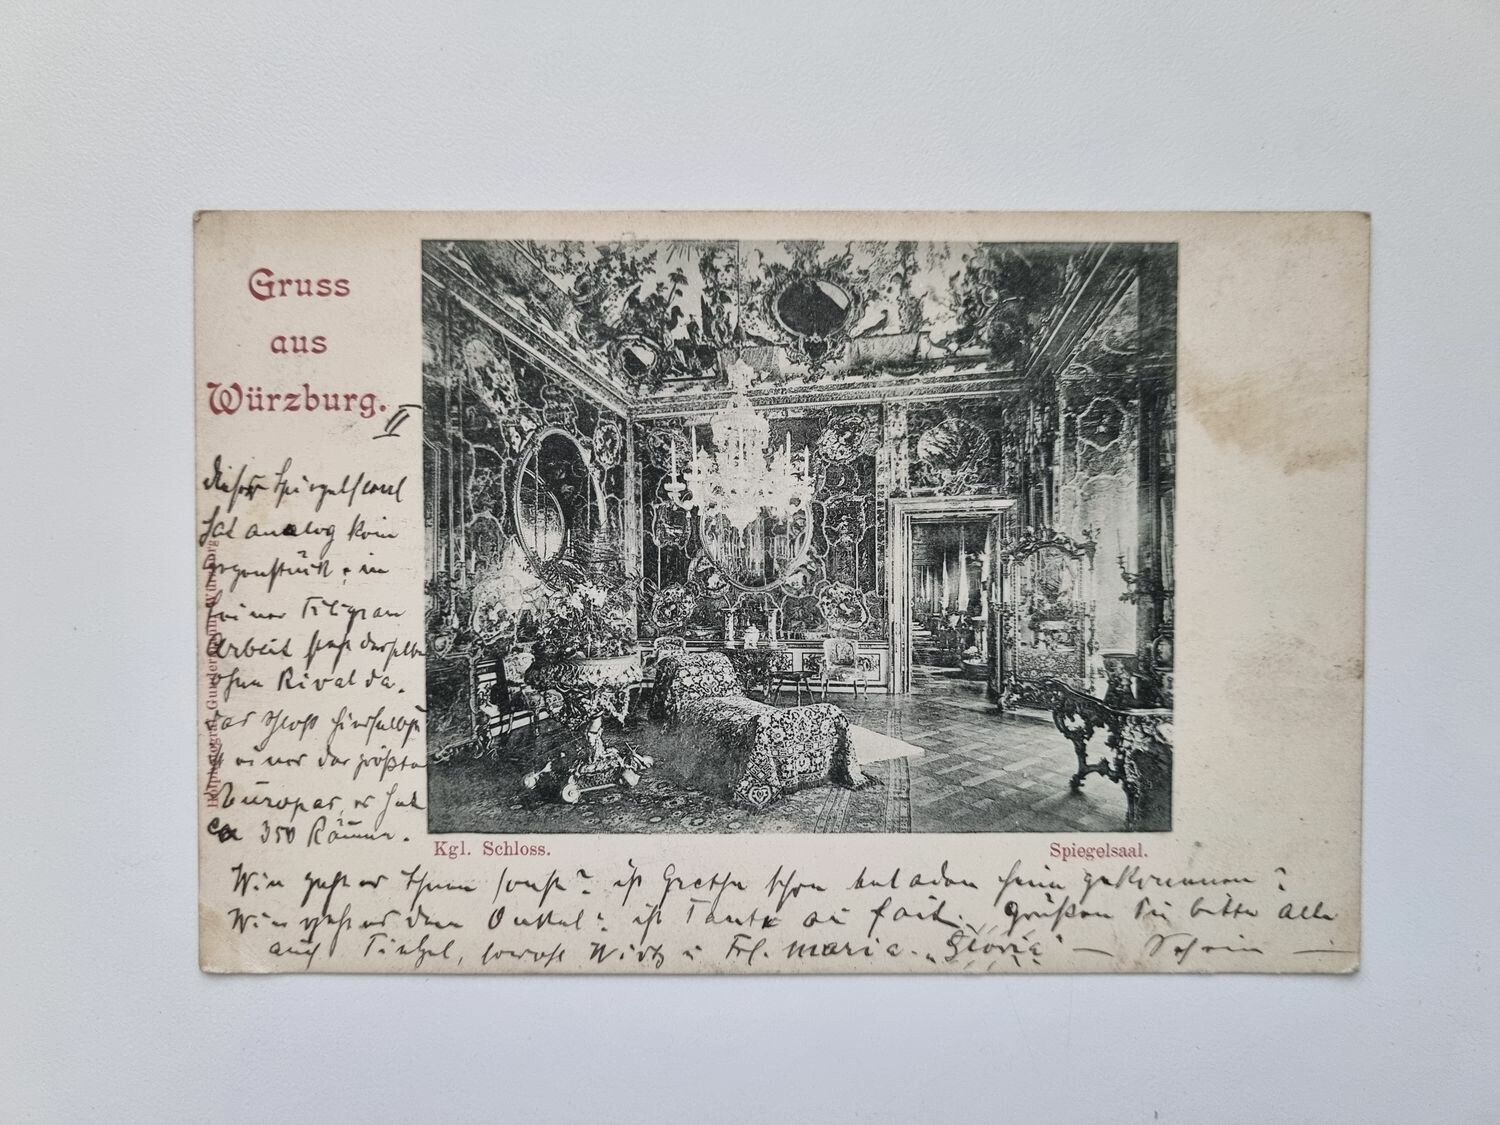 Gruss
aus
Würzburg.
II
dieser Spiegelsaal
hat analog kein
Gegenstück; in
seiner Filigran
Arbeit steht derselbe
ohne Rival da.
das Schloß hierselbst
ist eines der größten
Europas, es hat
ca 350 Räume.
Kgl. Schloss.
Spiegelsaal.
Wie geht es Ihnen sonst? ist Grethe schon heim gekommen?
Wie geht es dem Onkel? ist Tante Grüßen Sie bitte alle
auch sowohl u Frl. Maria. „Gloria" —